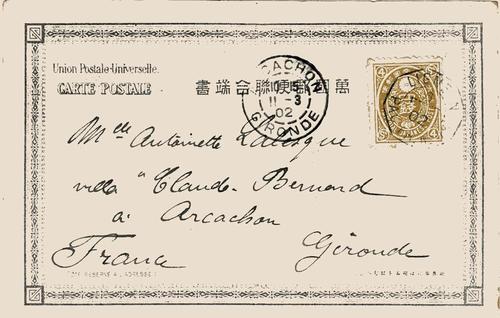 Union Postale Universelle.
CARTE POSTALE
萬國郵便聯合端書
ARCACHON
11 -3
02
GIRONDE
Mlle Antoinette
villa "Claude-Bernard
à Arcachon
France Gironde